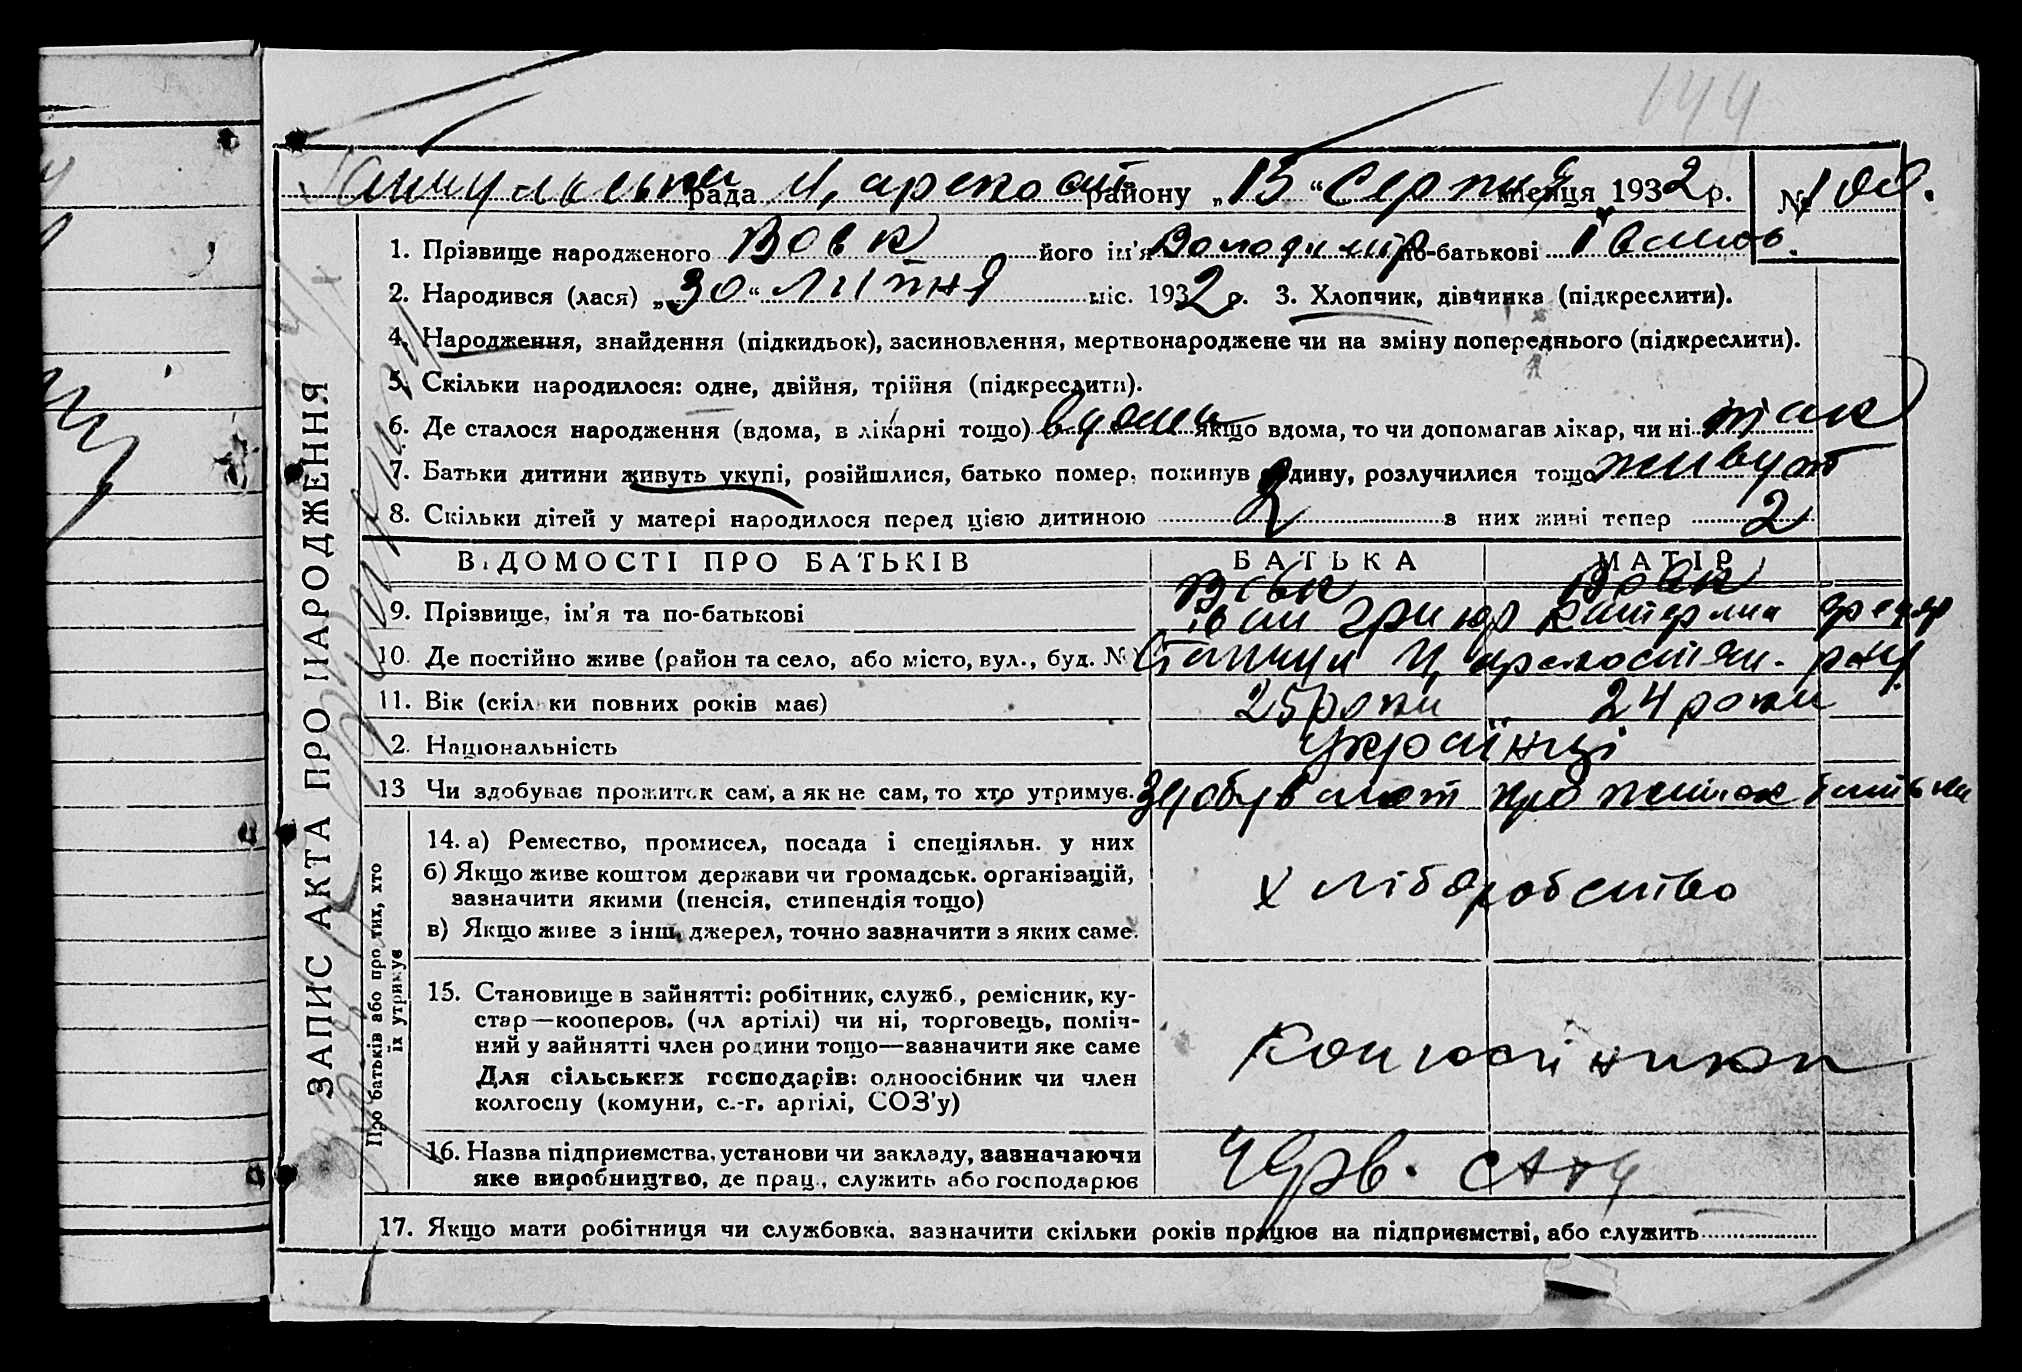 144
рада районе району „15“ Серпня місяця 1932 р. № 100.
ЗАПИС АКТА ПРО НАРОДЖЕННЯ
1. Прізвище народженого Вовк його ім'я Володимір по-батькові Іванов.
2. Народився (лася) „30“ липня міс. 1932 р. 3. Хлопчик, дівчинка (підкреслити).
4. Народження, знайдення (підкидьок), засиновлення, мертвонароджене чи на зміну попереднього (підкреслити).
5. Скільки народилося: одне, двійня, трійня (підкреслити).
6. Де сталося народження (вдома, в лікарні тощо) вдома якщо вдома, то чи допомагав лікар, чи ні так
7. Батьки дитини живуть укупі, розійшлися, батько помер, покинув родину, розлучилися тощо живут
8. Скільки дітей у матері народилося перед цією дитиною 2 з них живі тепер 2
ВІДОМОСТІ ПРО БАТЬКІВ БАТЬКА МАТІР
Вовк Вовк
9. Прізвище, ім'я та по-батькові Іван Григор Катерина Федор
10. Де постійно живе (район та село, або місто, вул., буд. №)
11. Вік (скільки повних років має) 25 роки 24 роки
12. Національність Українці
13 Чи здобуває прожиток сам, а як не сам, то хто утримує. Здобувают прожиток батьки
Про батьків або про тих, хто
їх утримує
14. а) Ремество, промисел, посада і спеціяльн. у них
б) Якщо живе коштом держави чи громадськ. організацій,
зазначити якими (пенсія, стипендія тощо)
Хліборобство
в) Якщо живе з інш. джерел, точно зазначити з яких саме.
15. Становище в зайнятті: робітник, служб., ремісник, ку-
стар—кооперов. (чл артілі) чи ні, торговець, поміч-
ний у зайнятті член родини тощо—зазначити яке саме
Для сільських господарів: одноосібник чи член
колгоспу (комуни, с.-г. артілі, СОЗ'у)
16. Назва підприємства, установи чи закладу, зазначаючи
яке виробництво, де прац., служить або господарює
Черв.
17. Якщо мати робітниця чи службовка, зазначити скільки років працює на підприємстві, або служить